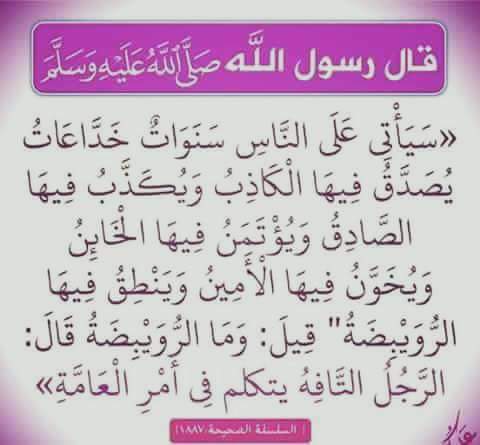 قال رسول الله صَلَّى اللَّهُ عَلَيْهِ وَسَلَّمَ
«سَيَأْتِي عَلَى النَّاسِ سَنَوَاتٌ خَدَّاعَاتُ
يُصَدَّقُ فِيهَا الْكَاذِبُ وَيُكَذَّبُ فِيهَا
الصَّادِقُ وَيُؤْتَمَنُ فِيهَا الْخَائِنُ
وَيُخَوَّنُ فِيهَا الْأَمِينُ وَيَنْطِقُ فِيهَا
الرُّوَيْبِضَةُ" قِيلَ: وَمَا الرُّوَيْبِضَةُ قَالَ:
الرَّجُلُ التَّافِهُ يتكلم فِى أَمْرِ الْعَامَّةِ»
[ السلسلة الصحيحة/١٨٨٧]